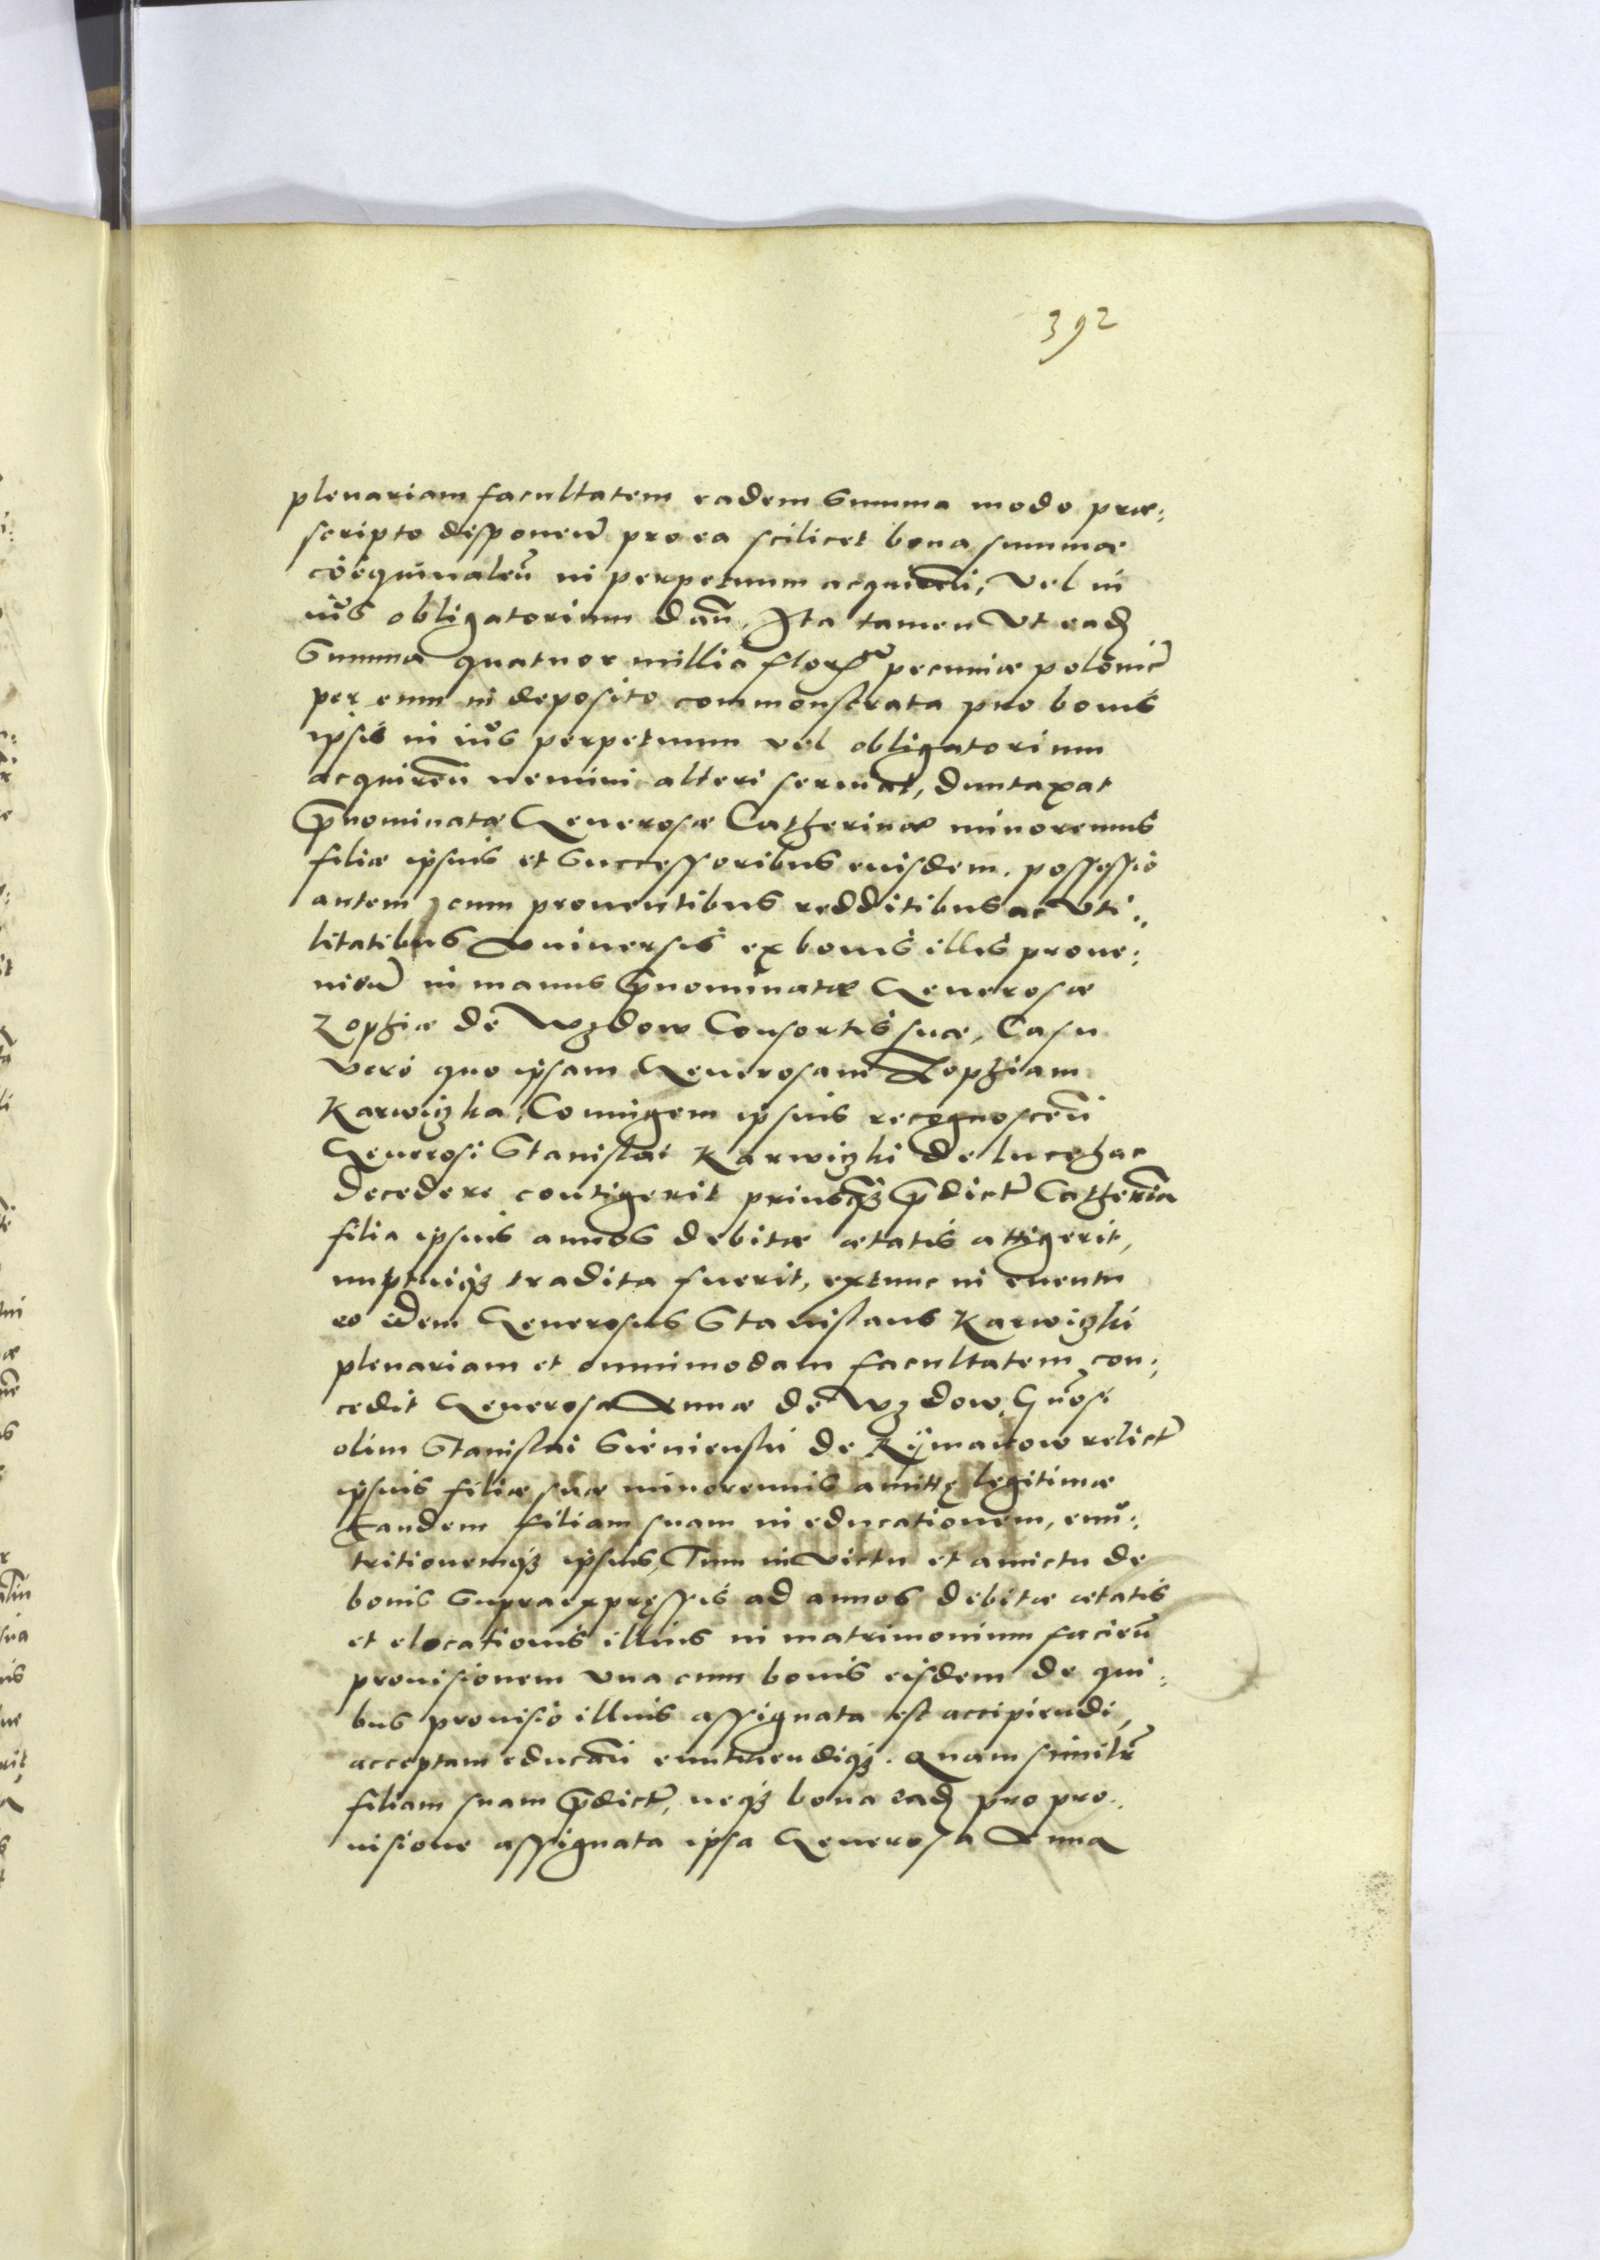 392
plenariam facultatem eadem Summa modo præ:
scripto disponen̄ pro ea scilicet bona summæ
coęquiualen̄ in perpetuum acquiren̄i, vel in
iūs obligatorium dan̄, Ita tamen vt ead
Summa quatuor millia flor pecuniæ polonic̄
per eum in deposito commonstrata pro bonis
ipsis in iūs perpetuum vel obligatorium
acquiren̄ nemini alteri seruiat, duntaxat
p̄nominatæ Generosæ Catherinæ minorennis
filiæ ipsius et Successoribus eiusdem. possessio
autem cum prouentibus redditibus ac vti:
litatibus vniuersis ex bonis illis proue:
nien̄ in manus p̄nominatæ Generosæ
Zophiæ de Wzdow Consortis suæ, Casu
vero quo ipsam Generosam Zophiam
Karwiczka, Coniugem ipsius recognoscen̄i
Generosi Stanislai Karwiczki de
decedere contigerit priusq̃ȝ p̄dict̄ Catherīa
filia ipsius annos debitæ ætatis attigerit,
nuptuiqȝ tradita fuerit, extunc in euentu
eo idem Generosus Stanislaus Karwiczki
plenariam et omnimodam facultatem con:
cedit Generosæ Annæ de Wzdow, Gn̄osi
olim Stanislai Sienienski de Rÿmanow relict̄
ipsius filiæ suæ minorennis amitę legitimæ
Eandem filiam suam in educationem, enū:
tritionemqȝ ipsius, Tum in victu et amictu de
bonis supraexpręssis ad annos debitæ ætatis
et elocationis illius in matrimonium facien̄
prouisionem vna cum bonis eisdem de qui:
bus prouisio illius assignata est accipiendi,
acceptam educan̄i enutriendiqȝ. Quam similr̄
filiam suam p̄dict̄, neqȝ bona ead pro pro:
uisione assignata ipsa Generosa Anna